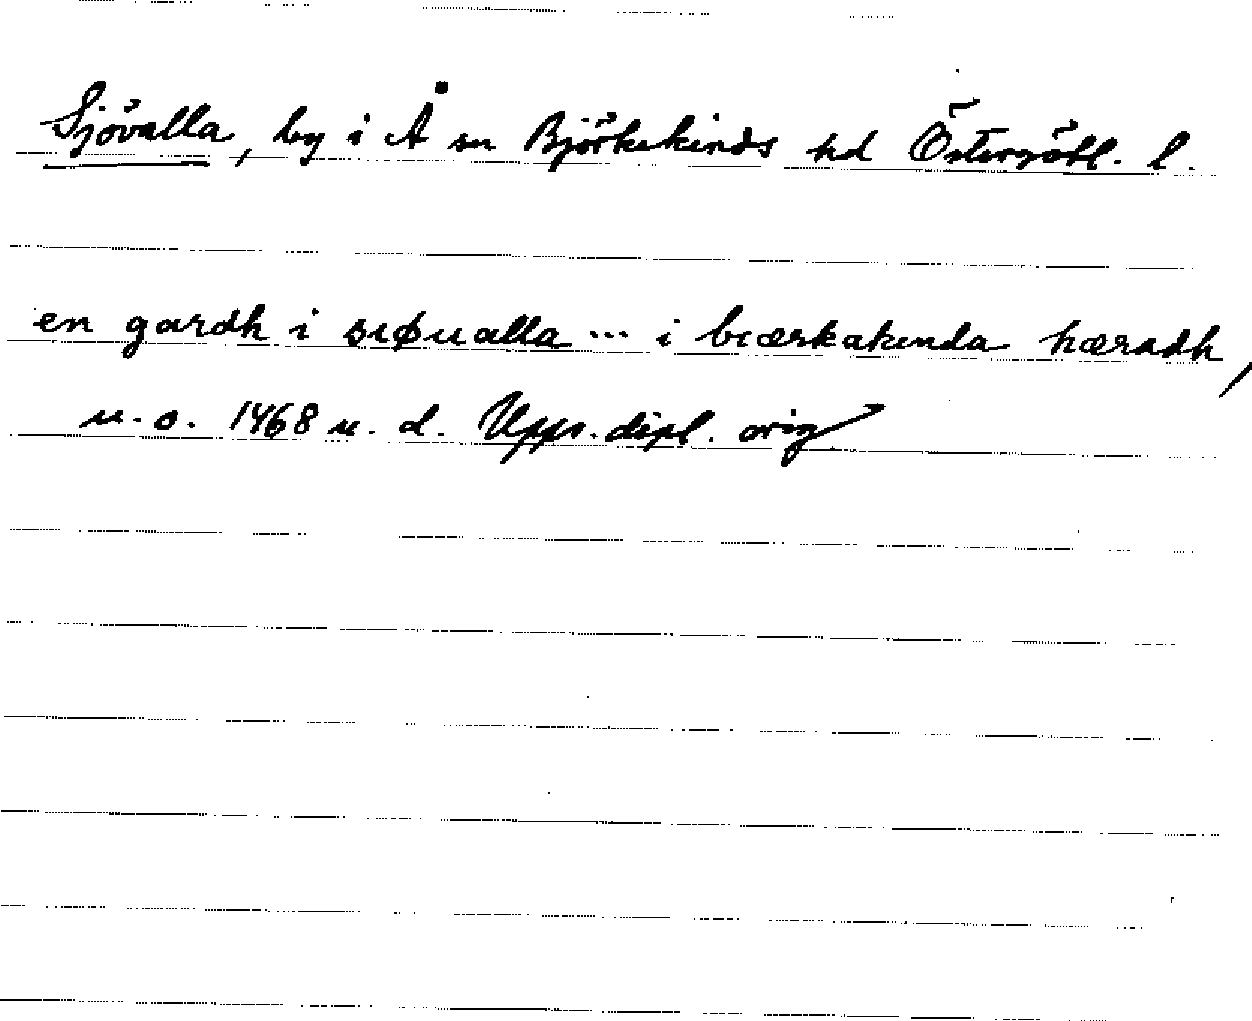 Sjövalla, by i Å sn Björkekinds hd Östergötl. l.
en gardh i siøualla ... i biærkakinda hæradh,
u. o. 1468 u. d. Upps. dipl. orig